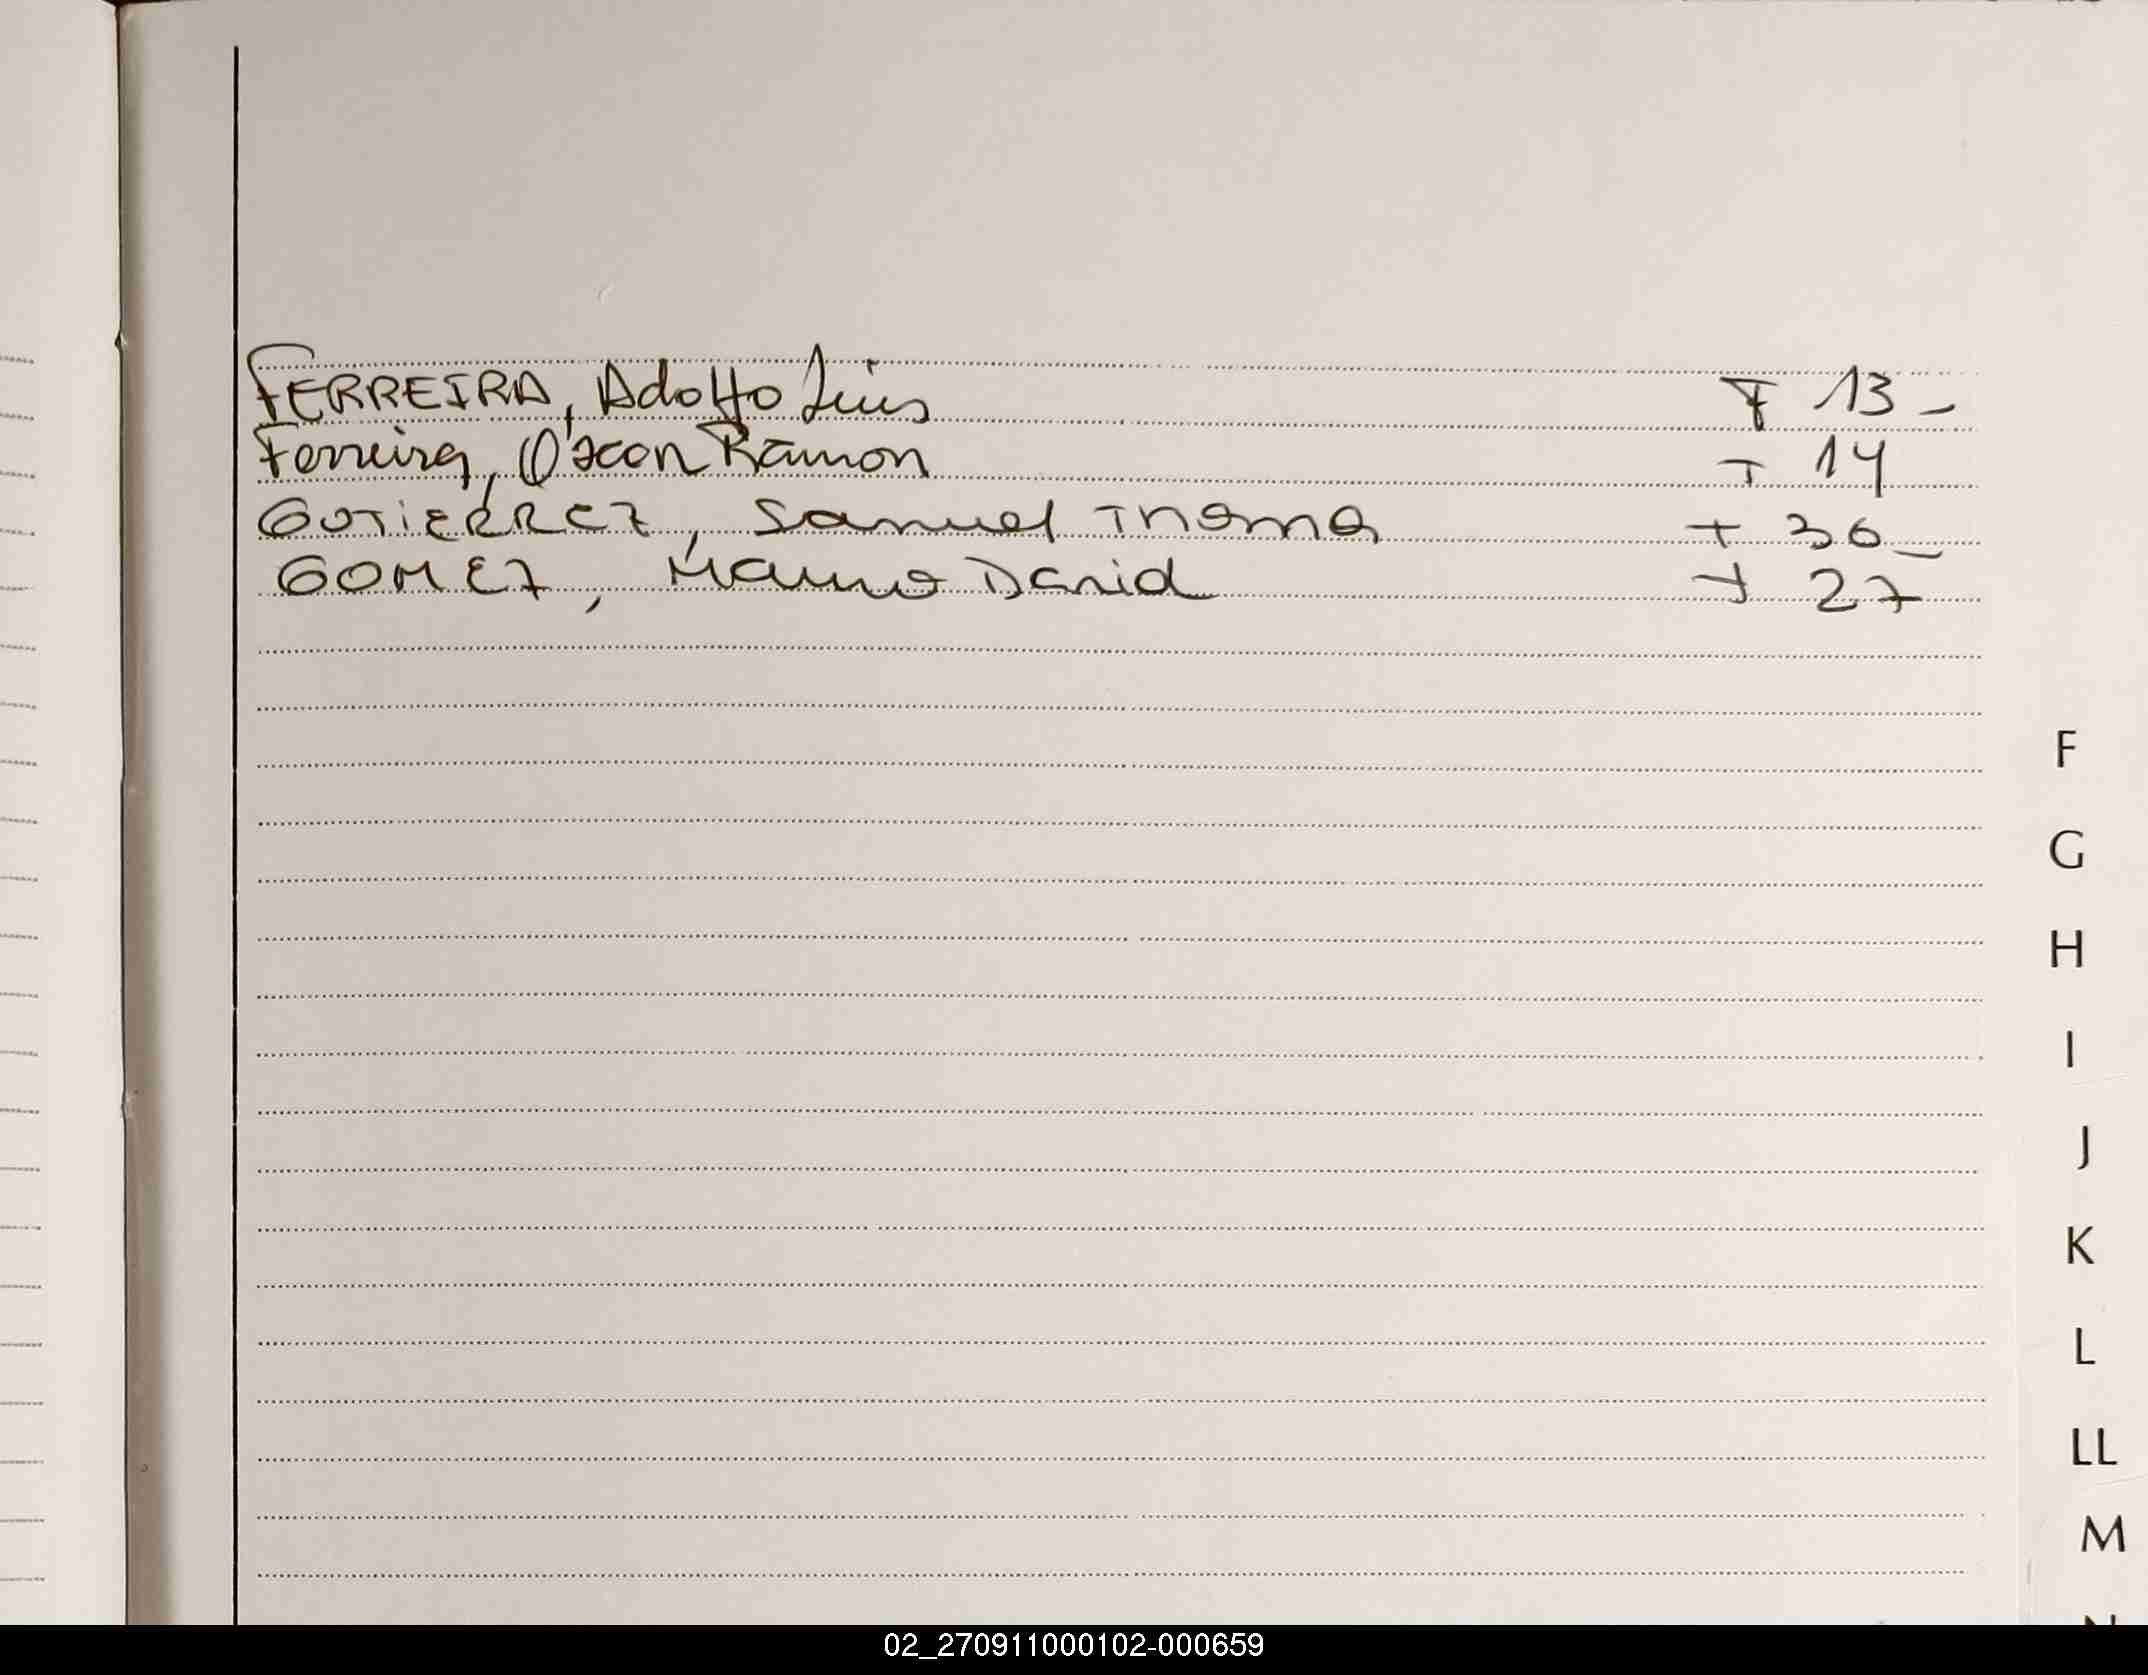 FERREIRA, Adolfo Luis F 13 -
Ferreira, Oscar Ramon F 14
GUTIERREZ, Samuel Thoma F 36 -
GOMEZ, Mauro David F 27
F
G
H
I
J
K
L
LL
M
N
02_270911000102-000659